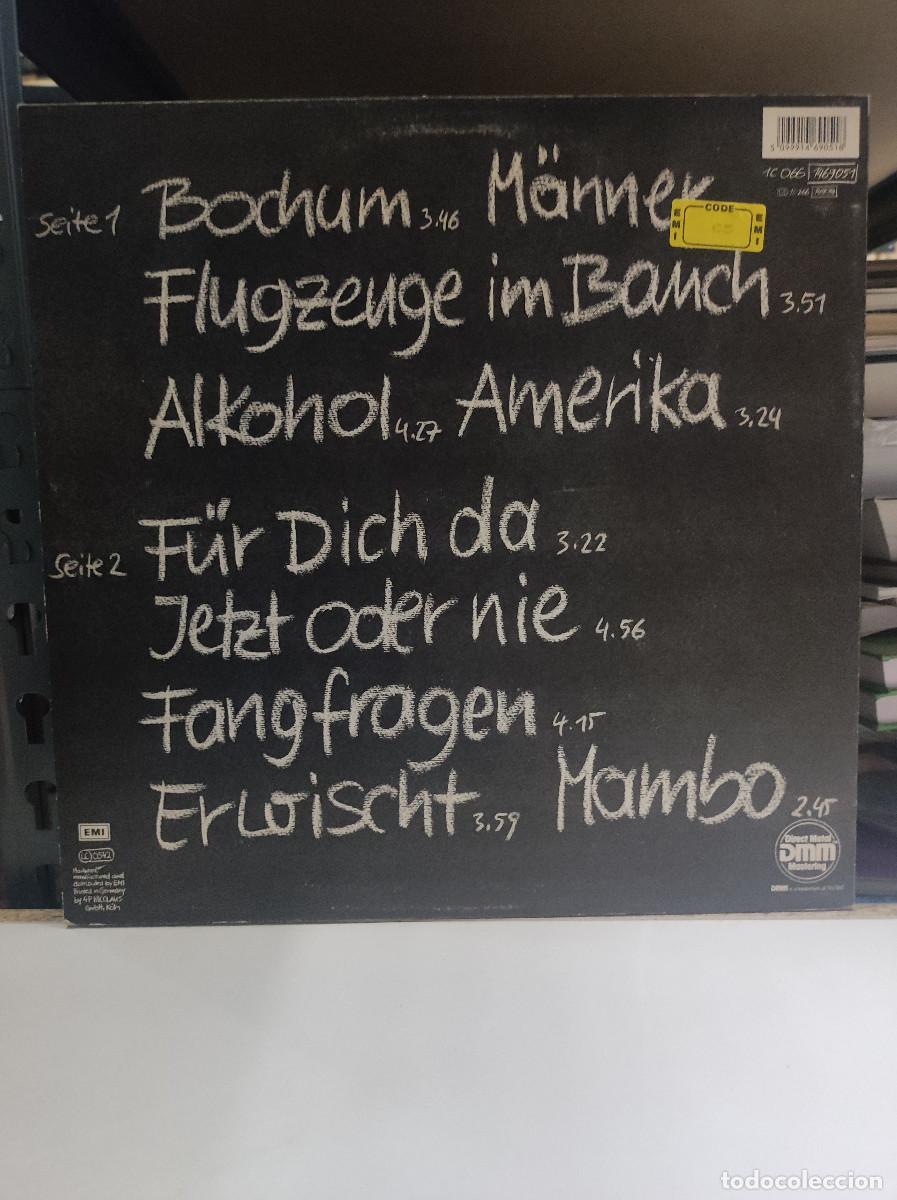 5 099914 690518
1C 066 1469051
Seite 1 Bochum 3.46 Männer
EMI CODE EMI
Flugzeuge im Bauch 3.51
Alkohol 4.27 Amerika 3.24
Seite 2 Für Dich da 3.22
Jetzt oder nie 4.56
Fangfragen 4.15
Erwischt 3.59 Mambo 2.45
EMI
LC 0542
manufactured and
distributed by EMI
Printed in Germany
by 4P NICOLAUS
GmbH, Köln
Direct Metal
DMM
Mastering
todocoleccion